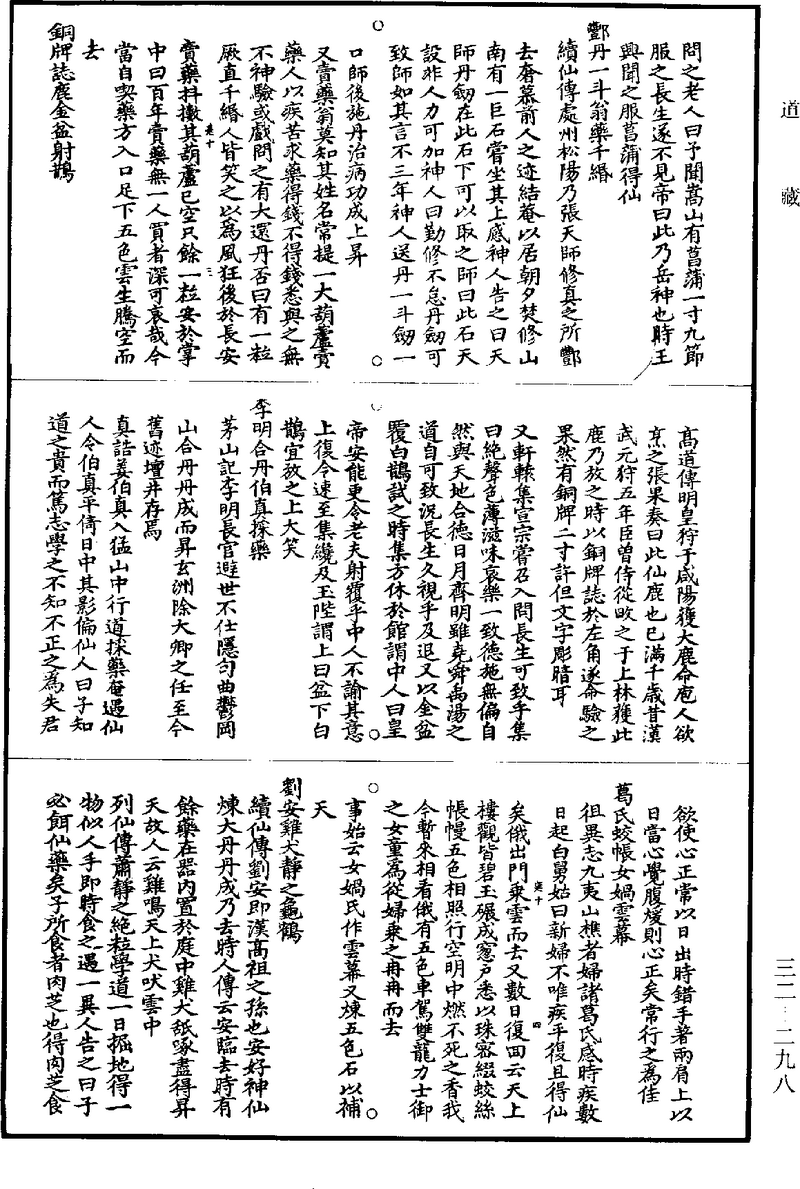 道藏
問之老人曰予聞嵩山有菖蒲一寸九節
服之長生遂不見帝曰此乃岳神也時王
興聞之服菖蒲得仙
酆丹一斗翁藥千緡
續仙傳處州松陽乃張天師修真之所酆
去奢慕前人之迹結菴以居朝夕焚修山
南有一巨石嘗坐其上感神人告之曰天
師丹劒在此石下可以取之師曰此石天
設非人力可加神人曰勤修不怠丹劒可
致師如其言不三年神人送丹一斗劒一
口師後施丹治病功成上昇
又賣藥翁莫知其姓名常提一大葫蘆賣
藥人以疾苦求藥得錢不得錢悉與之無
不神驗或戲問之有大還丹否曰有一粒
厥直千緡人皆笑之以為風狂後於長安
賣藥抖擻其葫蘆已空只餘一粒安於掌
中曰百年賣藥無一人買者深可哀哉今
當自喫藥方入口足下五色雲生騰空而
去
銅牌誌鹿金盆射鵲
高道傳明皇狩于咸陽獲大鹿命庖人欲
烹之張果奏曰此仙鹿也已滿千歲昔漢
武元狩五年臣曾侍從畋之于上林獲此
鹿乃放之時以銅牌誌於左角遂命驗之
果然有銅牌二寸許但文字彫暗耳
又軒轅集宣宗嘗召入問長生可致乎集
曰絶聲色薄滋味哀樂一致德施無偏自
然與天地合德日月齊明雖堯舜禹湯之
道自可致況長生久視乎及退又以金盆
覆白鵲試之時集方休於館謂中人曰皇
帝安能更令老夫射覆乎中人不諭其意
上復令速至集纔及玉陛謂上曰盆下白
鵲宜放之上大笑
李明合丹伯真採藥
茅山記李明長官避世不仕隱句曲鬱岡
山合丹丹成而昇玄洲除大卿之任至今
舊迹壇井存焉
真誥姜伯真入猛山中行道採藥奄遇仙
人令伯真平倚日中其影偏仙人曰子知
道之貴而篤志學之不知不正之為失君
欲使心正常以日出時錯手著兩肩上以
日當心覺腹煖則心正矣常行之為佳
葛氏蛟帳女媧雲幕
徂異志九夷山樵者婦諸葛氏感時疾數
日起白舅姑曰新婦不唯疾平復且得仙
矣俄出門乘雲而去又數日復回云天上
樓觀皆碧玉碾成窻戶悉以珠窬綴蛟絲
帳幔五色相照行空明中燃不死之香我
今暫來相看俄有五色車駕雙龍力士御
之女童為從婦乘之冉冉而去
事始云女媧氏作雲幕又煉五色石以補
天
劉安雞犬靜之龜鶴
續仙傳劉安即漢高祖之孫也安好神仙
煉大丹丹成乃去時人傳云安臨去時有
餘藥在器內置於庭中雞犬舐啄盡得昇
天故人云雞鳴天上犬吠雲中
列仙傳蕭靜之絶粒學道一日掘地得一
物似人手即時食之遇一異人告之曰子
必餌仙藥矣子所食者肉芝也得肉芝食
三二－二九八